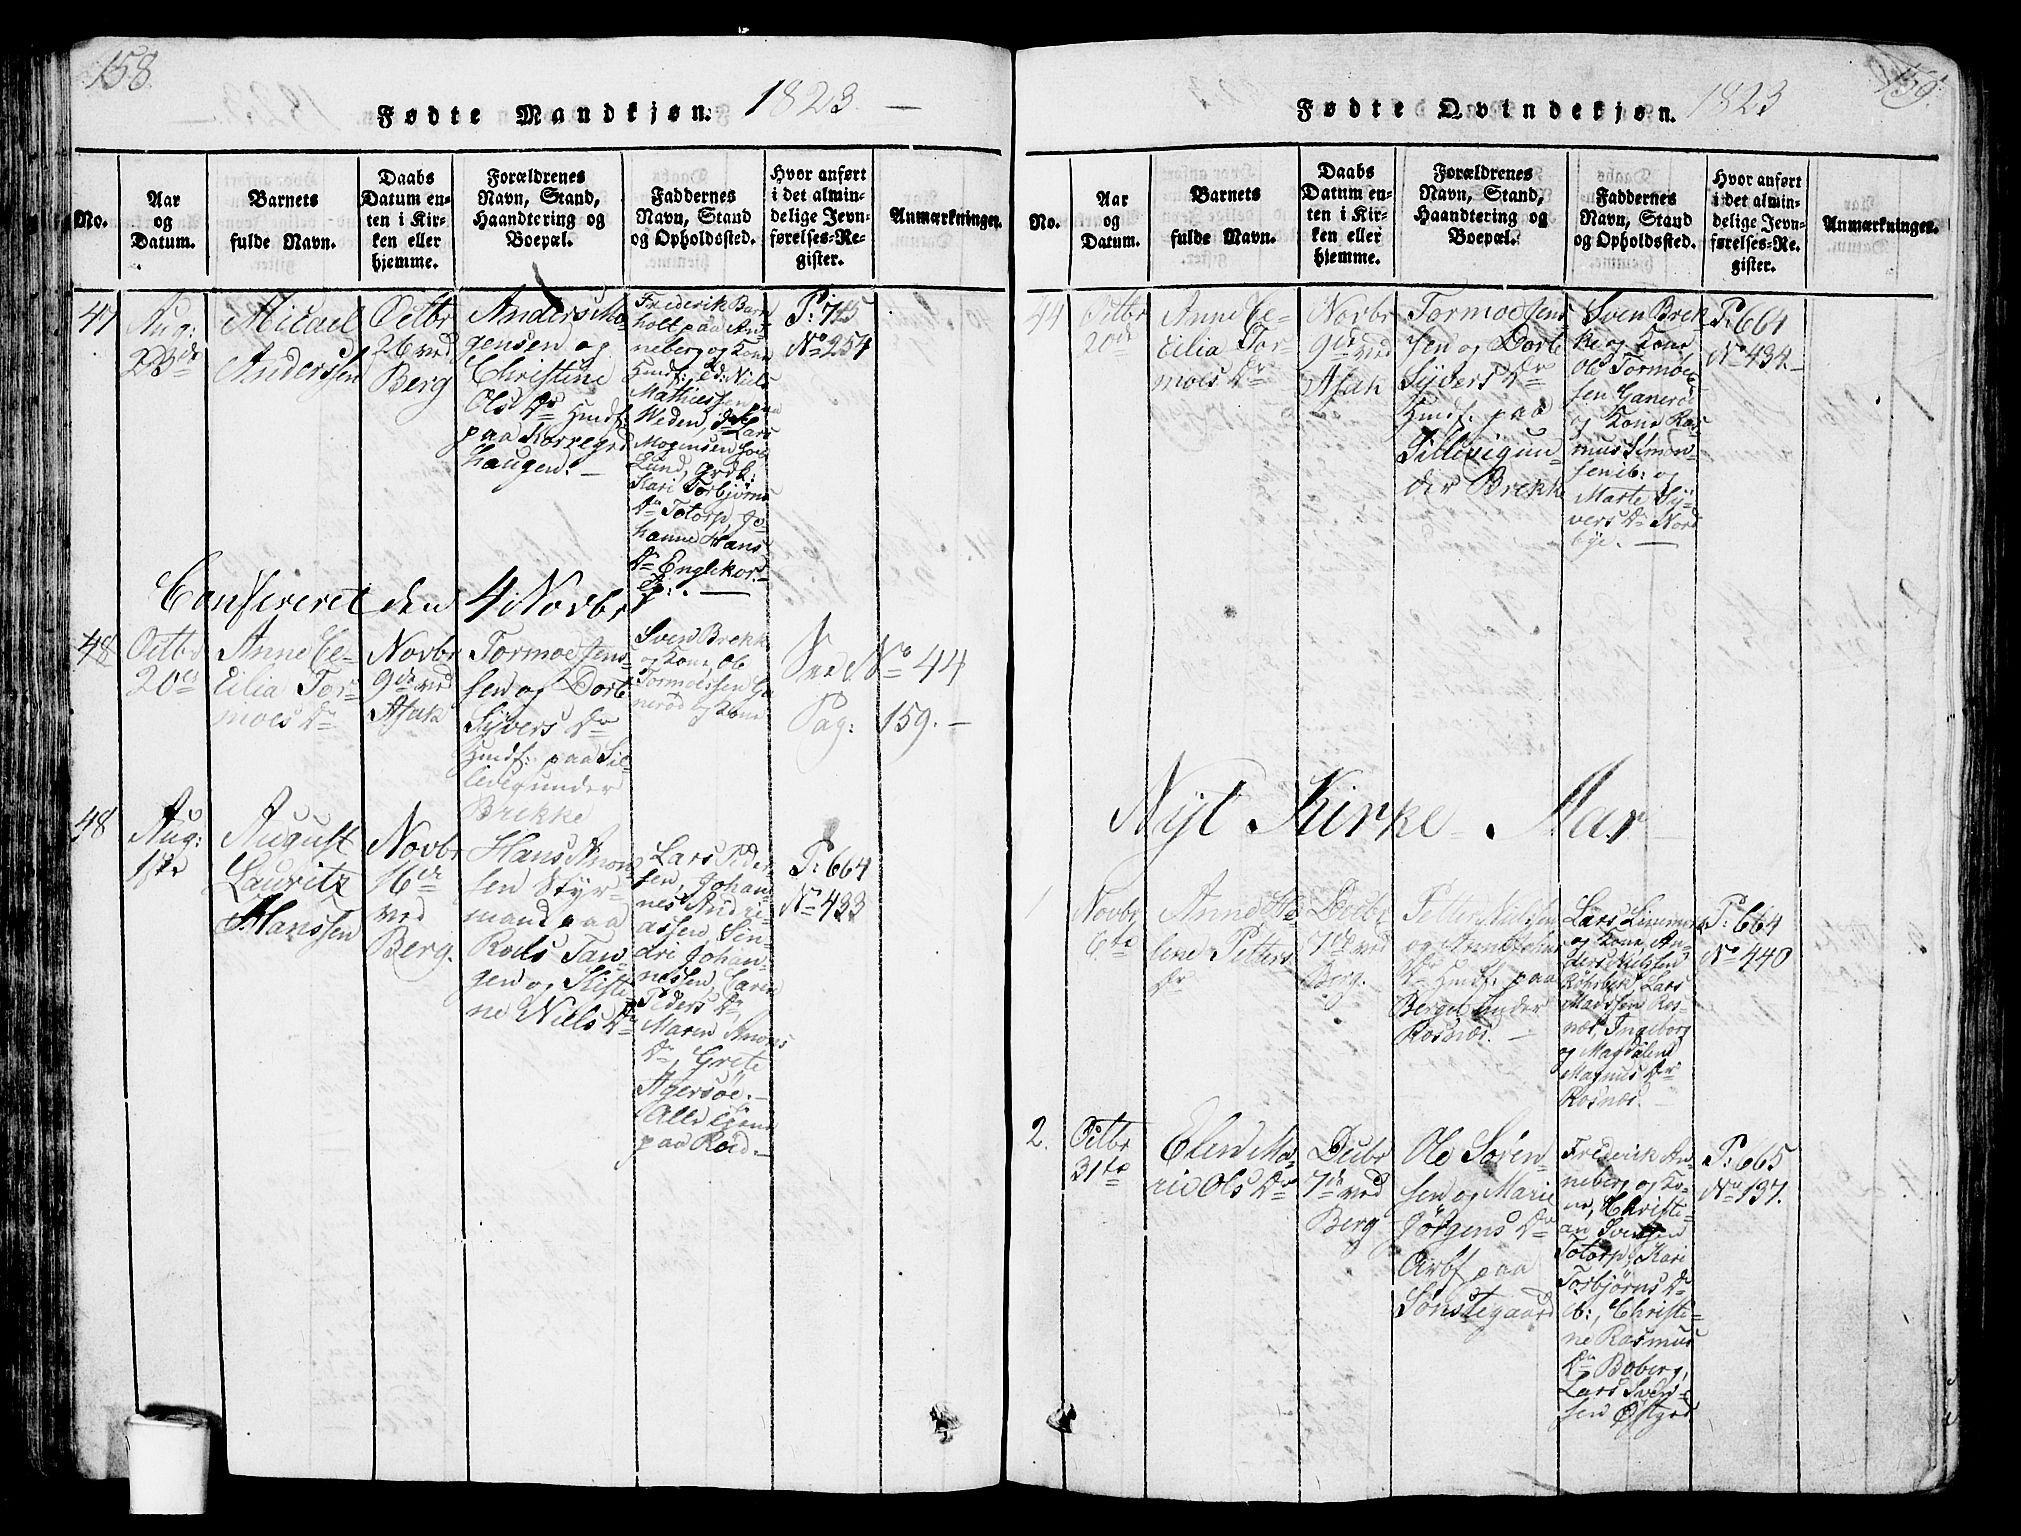 158.
Fødte Mandkjøn. 1823. —
No.
Aar
og
Datum.
Barnets
fulde Navn.
Daabs
Datum en-
ten i Kir-
ken eller
hjemme.
Forældrenes
Navn, Stand,
Haandtering og
Boepæl.
Faddernes
Navn, Stand
og Opholdssted.
Hvor anført
i det almin-
delige Jevn-
førelses-Re-
gister.
Anmærkninger.
47
Aug:
23de
Micael
Andersen
Octbr
26 ved
Berg
Anders Mo-
gensen og
Christine
Ols Dr Huusf:
paa Torregrd
haugen. —
Frederik Barn
holt paa An-
neberg og Kone
Huusf: ed: Niels
Mathiessen paa
Weden, do Lars
Mogensen
Lund, grdk:
Kari Torbjørns
Dr Totorp, Jo-
hanne Hans
Dr Englekor.
P: 745
No 254
Confereret den 4 Novbr
48
Octbr
20de
Anne Ce-
cilia Tor-
moes Dr
Novbr
9de ved
Asak
Tormoe Jens-
sen og Dorte
Syvers Dr
Huusf: paa Sil-
levig under
Brekke
Sven Brekke
og Kone, Ole
Tormoessen Ga
nerød og Kone
See No 44
Pag: 159. —
48
Aug:
1ste
August
Lauritz
Hanssen
Novbr
16de
ved
Berg.
Hans Amon-
sen Styr-
mand paa
Røds Tan-
gen og Kisti-
ne Niels Dr
Lars Peder-
sen, Johan-
nes Andre-
assen, Sin-
dri Johan-
nessen, Caren
Peders Dr,
Maren Amons
Dr, Grete
Agersöe. —
Alle
paa Rød. —
P: 664
No 433
159.
Fødte Qvindekjøn. 1823
No.
Aar
og
Datum.
Barnets
fulde Navn.
Daabs
Datum en-
ten i Kir-
ken eller
hjemme.
Forældrenes
Navn, Stand,
Haandtering og
Boepæl.
Faddernes
Navn, Stand
og Opholdssted.
Hvor anført
i det almin-
delige Jevn-
førelses-Re-
gister.
Anmærkninger.
44
Octbr
20de
Anne Ce-
cilia Tor-
moes Dr
Novbr
9de ved
Asak
Tormoe Jens
sen og Dorte
Syvers Dr
Huusf: paa
Sillevig un-
der Brekke
Sven Brek
ke og Kone
Ole Tormoe-
sen Ganerød
og Kone Ras-
mus Simon-
sen ib: og
Marte Sy-
vers Dr Nord
bye. —
P: 664
No 434. —
Nyt Kirke-Aar
1
Novbr
6te
Anne He-
lene Petters
Dr
Decbr
7de ved
Berg.
Petter Nielsen
og Anne
Dr Huusf: paa
Berget under
Rosnæs. —
Lars
og Kone, An-
ders Nielsen
Rörbek, Lars
Madssen Ros-
næs, Ingeborg
og Magdalene
Magnus Dr
Rosnæs. —
P: 664
No 440
2.
Octbr
31te
Elen Ma-
rie Ols Dr
Decbr
7de ved
Berg
Ole Søren-
sen og Marie
Jörgens Dr
Arbf paa
Sønstegaard
Frederik An-
neberg og Ko-
ne, Christi-
an Svensen
Totorp, Kari
Torbjørns Dr
ib:, Christi-
ne Rasmus
Dr Boberg,
Lars Sven-
sen Østgrd
P: 665
No 137.